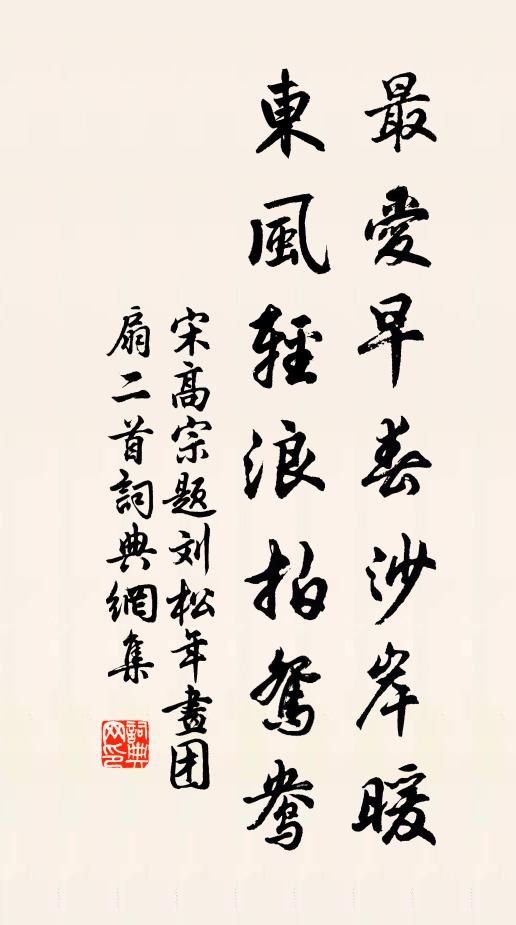 最愛早春沙岸暖
東風輕浪拍鴛鴦
宋高宗題刘松年畫团
扇二首詞典網集
詞典
网印